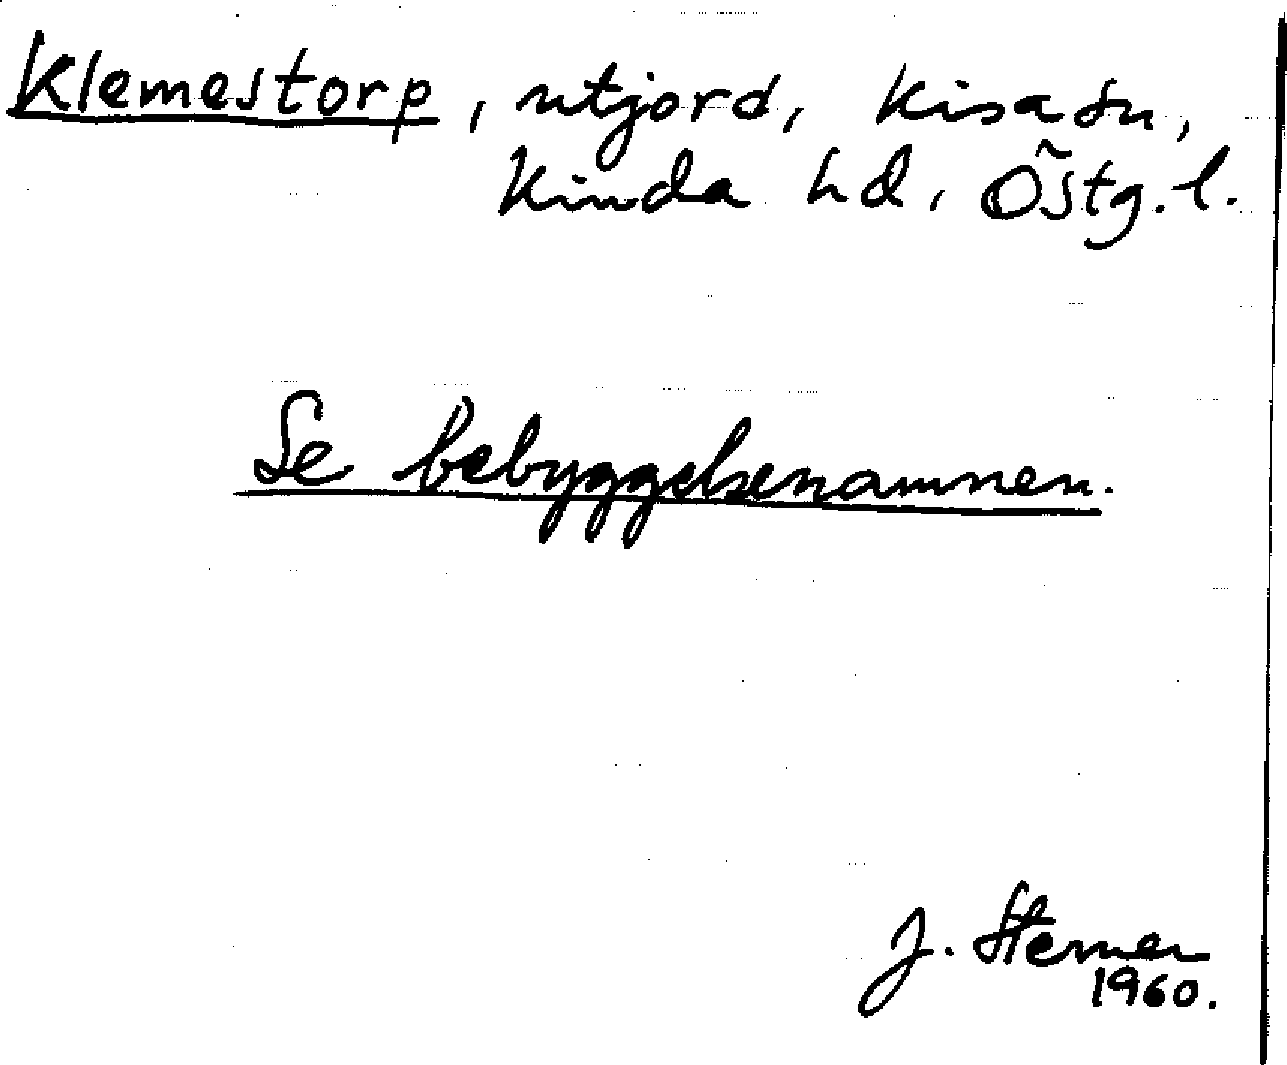 Klemestorp, utjord, Kisa sn,
Kinda hd, Östg. l.
Se bebyggelsenamnen.
J. Sterner
1960.